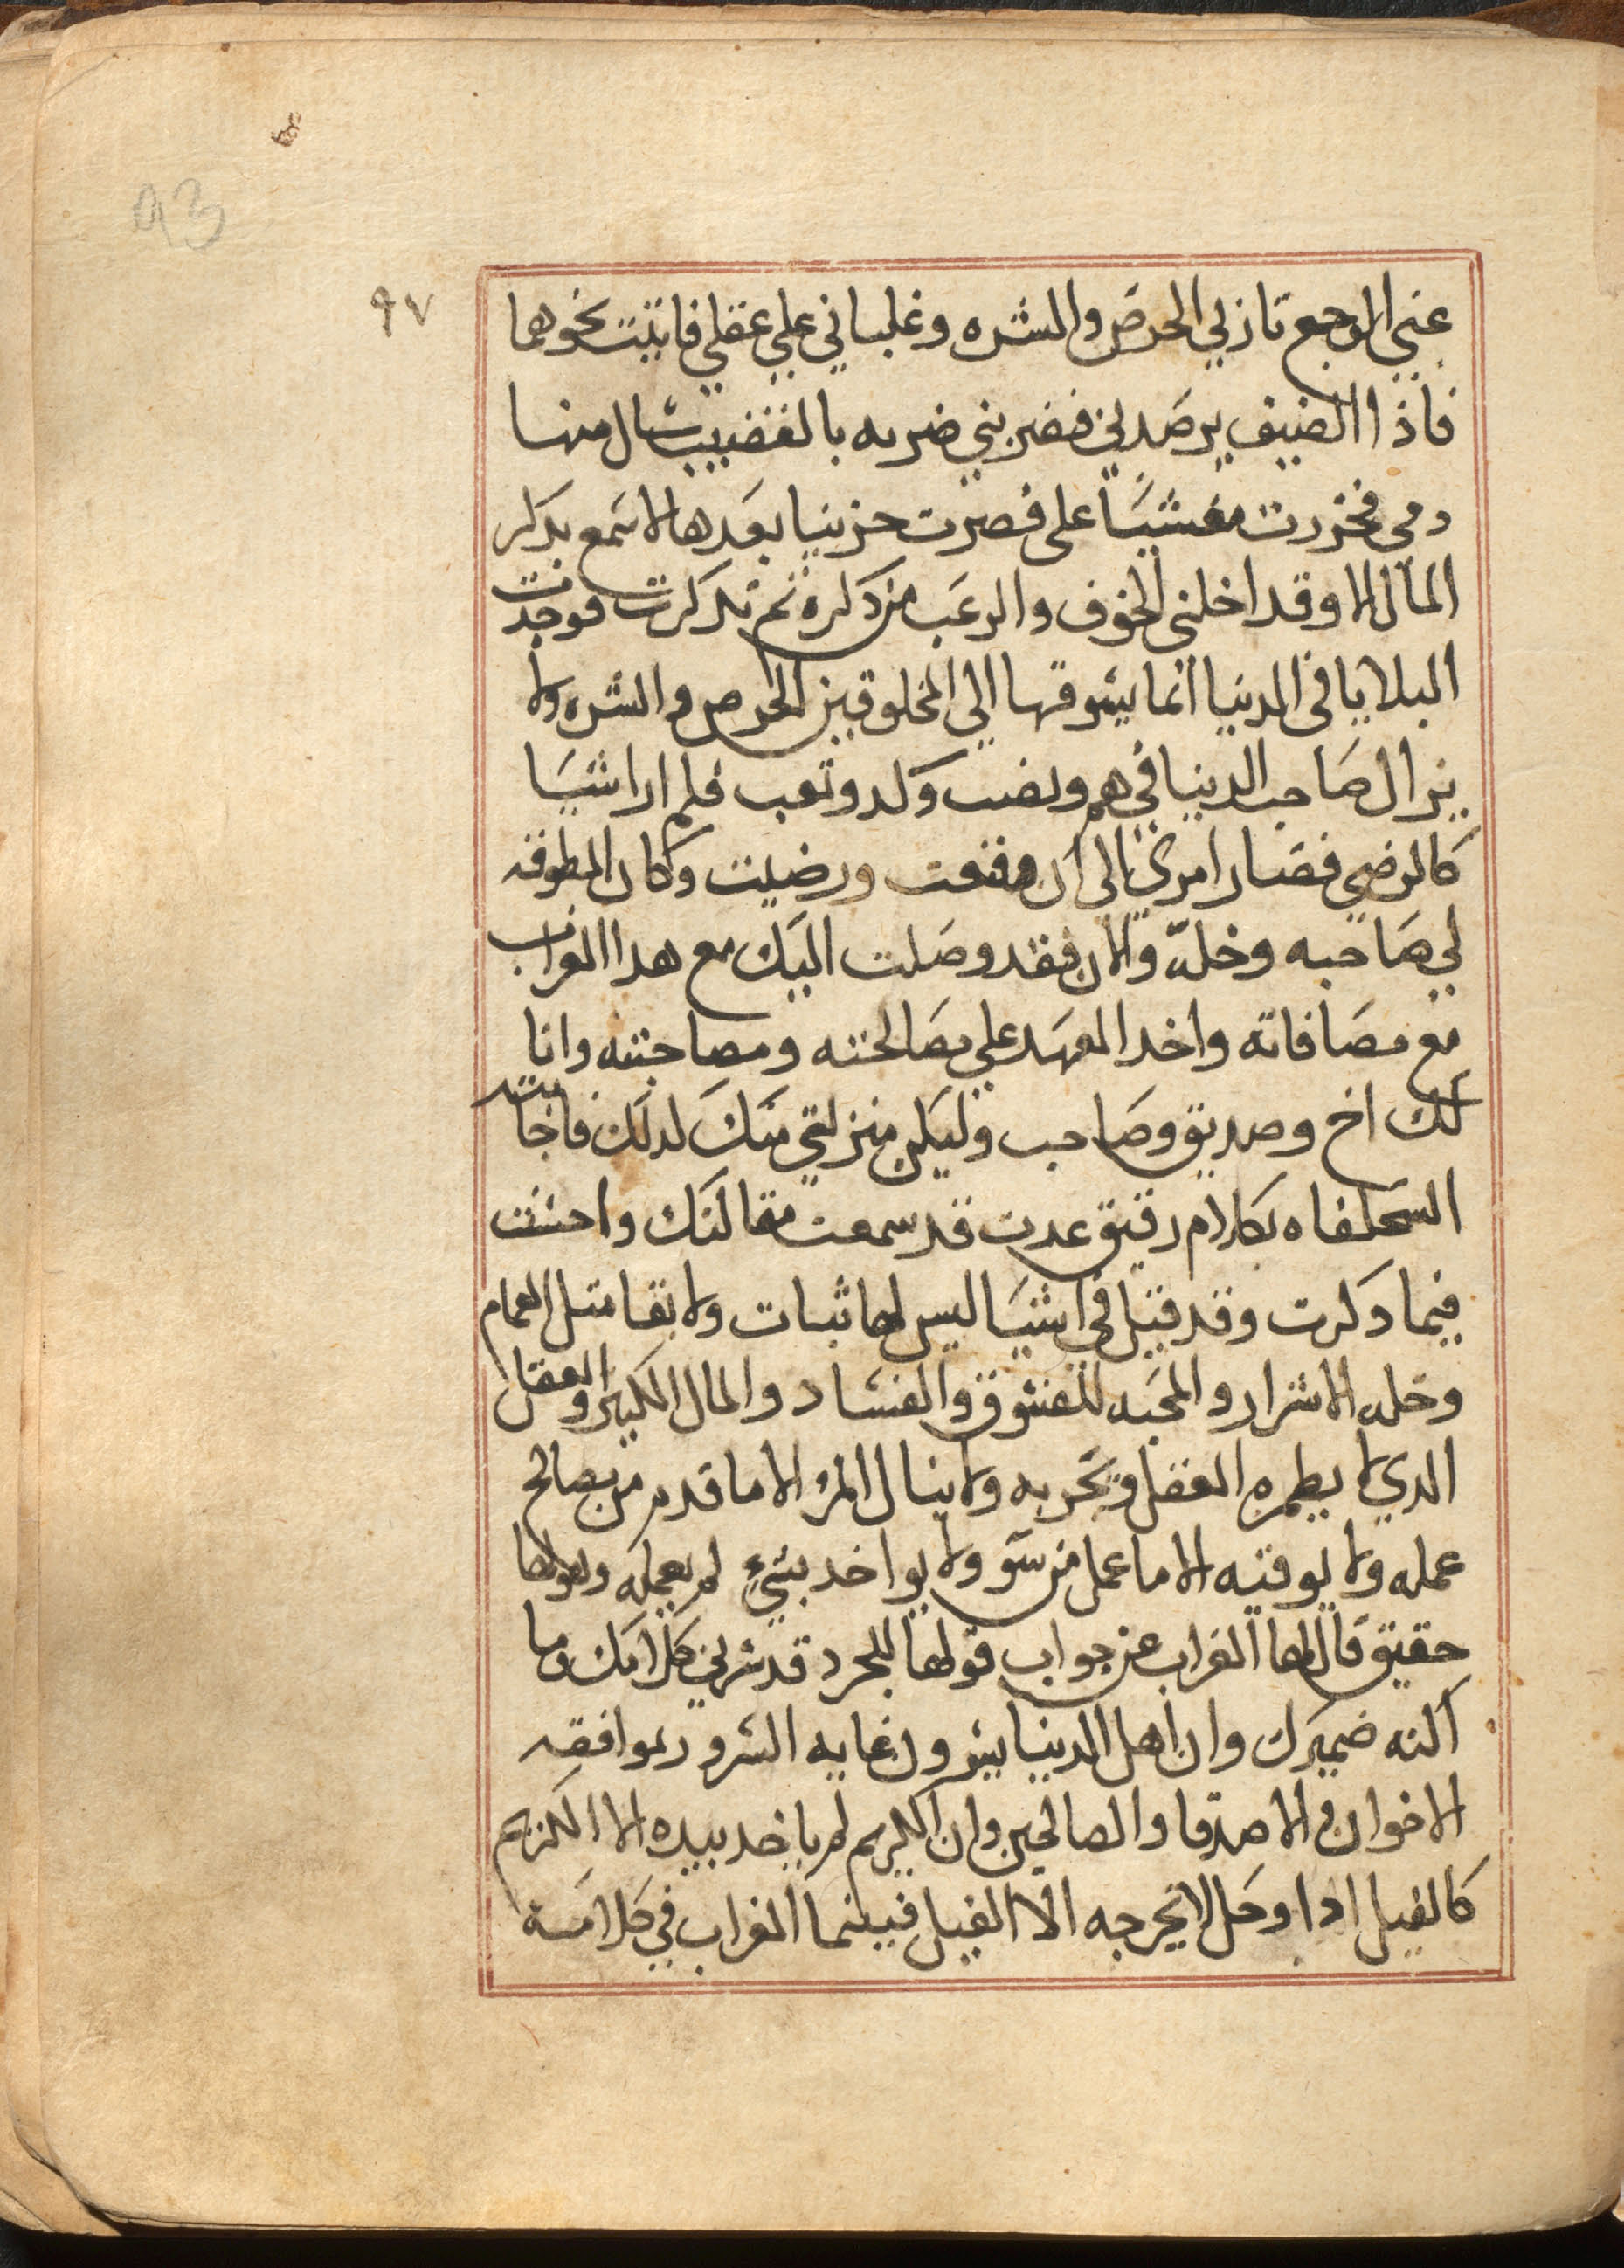 93
٩٧
عني الوجع تازلي الحرص والشره وغلباني علي عقلي فاتيت نحوهما
فاذا الضيف يرصدني فضربني ضربه بالقضيب سال منها
دمي فخررت مغشيًا على فصرت حزينا بعدها لا اسمع بدكر
المال الا وقد اخلني الخوف والرعب من دكره ثم تدكرت فوجدت
البلايا في الدنيا انما يسوقها الي المخلوقين الحرص والشره ولا
يزال صاحب الدنيا في هم ونصب وكد وتعب فلم ارا شيا
كالرضي فصار امري الى ان قنعت ورضيت وكان المطوقه
لي صاحبه وخلّه والان فقد وصلت اليك مع هدا الغراب
مع مصافاته واخد العهد علي مصالحته ومصاحبته وانا
لك اخ وصديق وصاحب وليكن منزلتي منك لدلك فاجابته
السحلفاه بكلام رقيق عدت قد سمعت مقالتك واحسنت
فيما دكرت وقد قيل في اشيا ليس لها ثبات ولا بقا متل الغمام
وخله الاشرار والمحبه للفسوق والفساد والمال الكثير والعقل
الدي لا يطمره العقل وتجربه ولا ينال المرؤ الا ما قدم من صالح
عمله ولا يوقيه الا ما عمل من سو ولا يواخد بشيءٍ لم يعمله
حقيق قال لها الغراب عن جواب قولها للجرد قد سرني كلامك وما
اكنه ضميرك وان اهل الدنيا يرون غايه السرور بموافقه
الاخوان والاصدقا والصالحين وان الكريم لم ياخد بيده الا الكريم
كالفيل ادا وحل لا يخرجه الا الفيل فبينما الغراب في كلامه